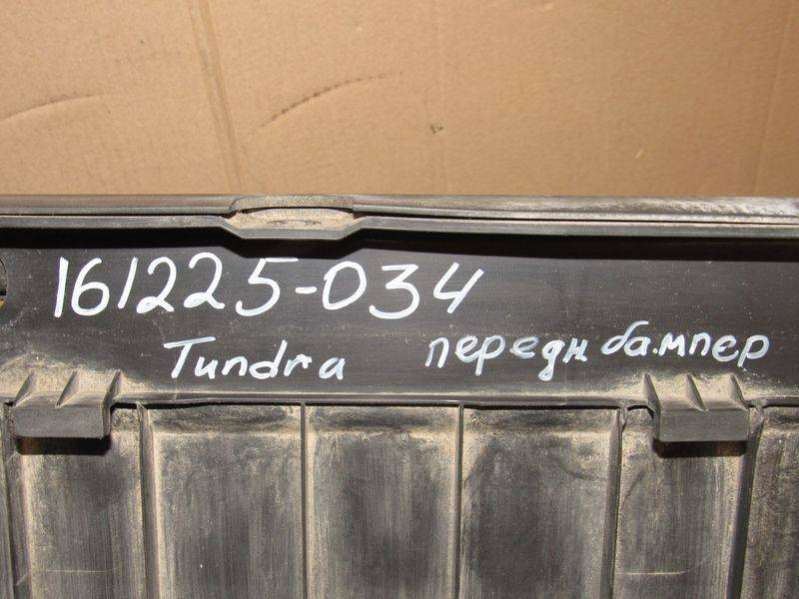 161225-034
Tundra передн бампер